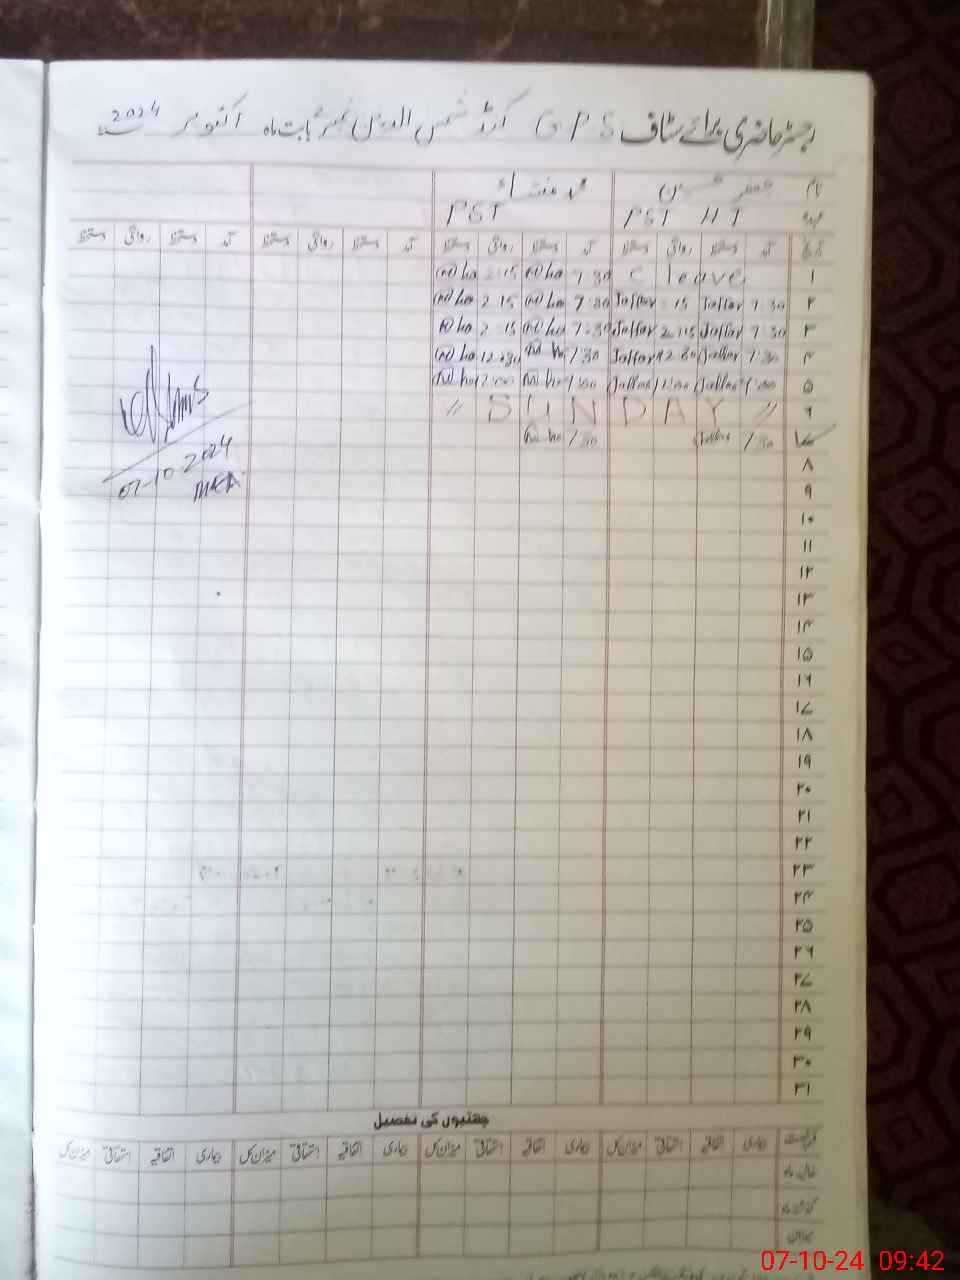 رجسٹر حاضری برائے سٹاف GPS کنڈ شمس الدین نمبر 2 بابت ماہ اکتوبر 2024
نام جعفر حسین محمد
عہدہ PST HT PST
تاریخ آمد دستخط روانگی دستخط آمد دستخط روانگی دستخط آمد دستخط روانگی دستخط آمد دستخط روانگی دستخط
۱ C leave 7:30 2:15
۲ 7:30 Jaffar :15 Jaffar 7:30 2:15
۳ 7:30 Jaffar 2:15 Jaffar 7:30 2:15
۴ 7:30 Jaffar 12:30 Jaffar 7:30 12:30
۵ 7:00 Jaffar 12:00 Jaffar 7:00 12:00
۶ // SUNDAY //
۷ 7:30 Jaffar 7:30
07-10-2024
۸
۹
۱۰
۱۱
۱۲
۱۳
۱۴
۱۵
۱۶
۱۷
۱۸
۱۹
۲۰
۲۱
۲۲
۲۳
۲۴
۲۵
۲۶
۲۷
۲۸
۲۹
۳۰
۳۱
چھٹیوں کی تفصیل
بیماری اتفاقیہ استحقاقی میزان کل بیماری اتفاقیہ استحقاقی میزان کل بیماری اتفاقیہ استحقاقی میزان کل بیماری اتفاقیہ استحقاقی میزان کل
حال ماہ
گذشتہ ماہ
میزان
07-10-24 09:42